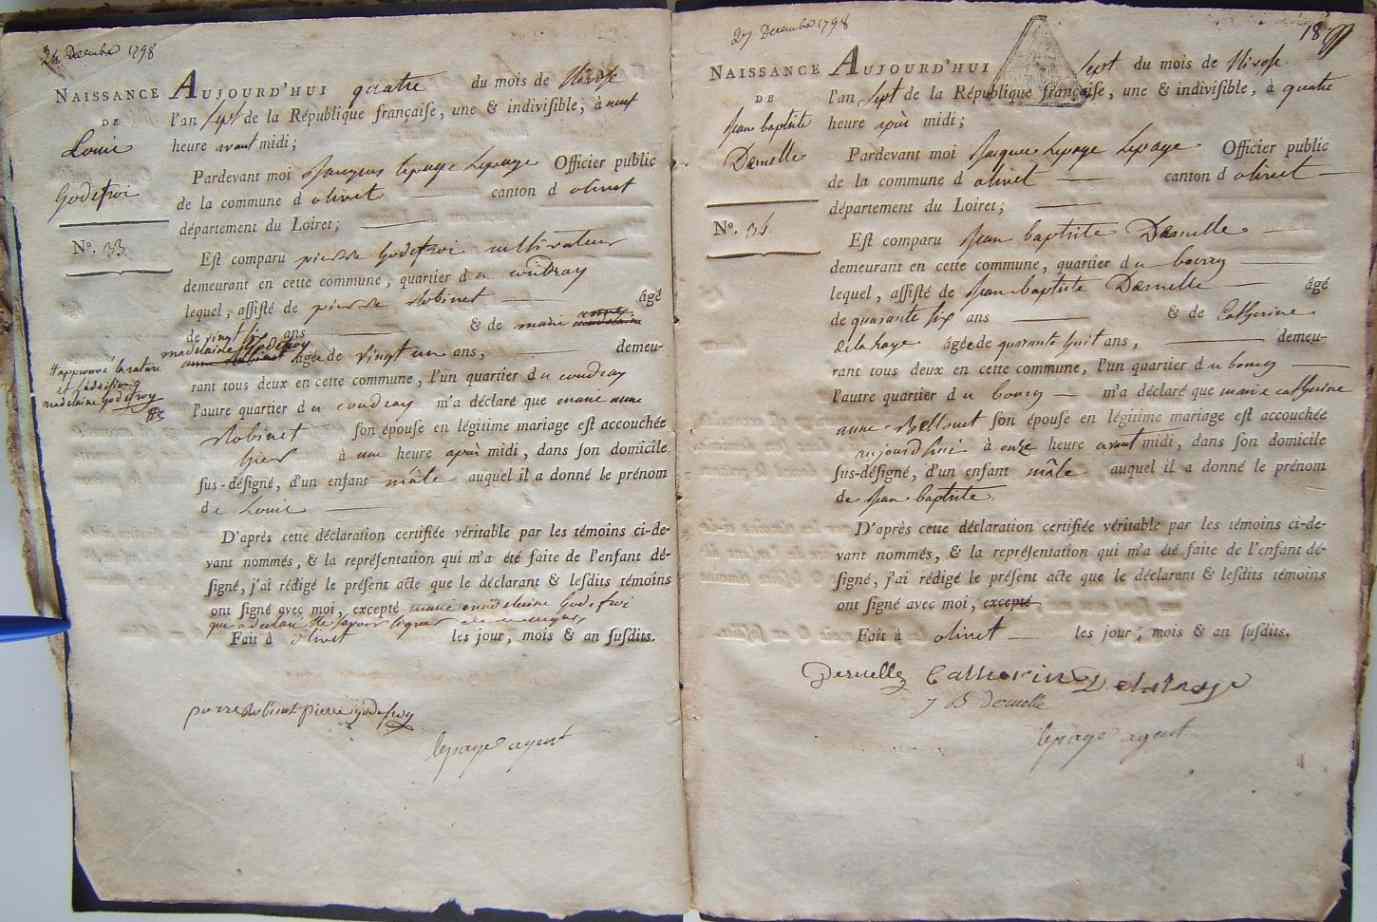 24 Decembre 1798
NAISSANCE
DE
Louis
Godefroi
N°. 33
AUJOURD'HUI quatre du mois de Nivose
l'an sept de la République françaiſe, une & indiviſible, à neuf
heure avant midi;
Pardevant moi Jacques lepage Lepage Officier public
de la commune d olivet canton d olivet
département du Loiret;
Eſt comparu pierre Godefroi cultivateur
demeurant en cette commune, quartier du coudray
lequel, aſſiſté de pierre Robinet âgé
de vingt six ans & de marie
madelaine Godefroy âgée de vingt un ans, demeu-
rant tous deux en cette commune, l'un quartier du coudray
l'autre quartier du coudray m'a déclaré que marie anne
Robinet ſon épouſe en légitime mariage eſt accouchée
hier à une heure après midi, dans ſon domicile
ſus-déſigné, d'un enfant mâle auquel il a donné le prénom
de Louis
D'après cette déclaration certifiée véritable par les témoins ci-de-
vant nommés, & la repréſentation qui m'a été faite de l'enfant dé-
ſigné, j'ai rédigé le préſent acte que le déclarant & leſdits témoins
ont ſigné avec moi, excepté marie madelaine Godefroi
que a declaré ne savoir signer
Fait à olivet les jour, mois & an ſuſdits.
approuvé la rature
madelaine godefroy
pierre Robinet pierre godefroy
lepage agent
27 Decembre 1798
18
NAISSANCE
DE
Jean baptiste
Dernelle
N°. 34
AUJOURD'HUI sept du mois de Nivose
l'an sept de la République françaiſe, une & indiviſible, à quatre
heure après midi;
Pardevant moi Jacques Lepage Lepage Officier public
de la commune d olivet canton d olivet
département du Loiret;
Eſt comparu Jean baptiste Dernelle
demeurant en cette commune, quartier du bourg
lequel, aſſiſté de Jean baptiste Dernelle âgé
de quarante six ans & de Catherine
delahaye âgée de quarante huit ans, demeu-
rant tous deux en cette commune, l'un quartier du bourg
l'autre quartier du bourg m'a déclaré que marie catherine
anne ſon épouſe en légitime mariage eſt accouchée
aujourd'hui à onze heure avant midi, dans ſon domicile
ſus-déſigné, d'un enfant mâle auquel il a donné le prénom
de Jean baptiste
D'après cette déclaration certifiée véritable par les témoins ci-de-
vant nommés, & la repréſentation qui m'a été faite de l'enfant dé-
ſigné, j'ai rédigé le préſent acte que le déclarant & leſdits témoins
ont ſigné avec moi, excepté
Fait à olivet les jour, mois & an ſuſdits.
Dernelle Catherine Delahaye
J B dernelle
lepage agent